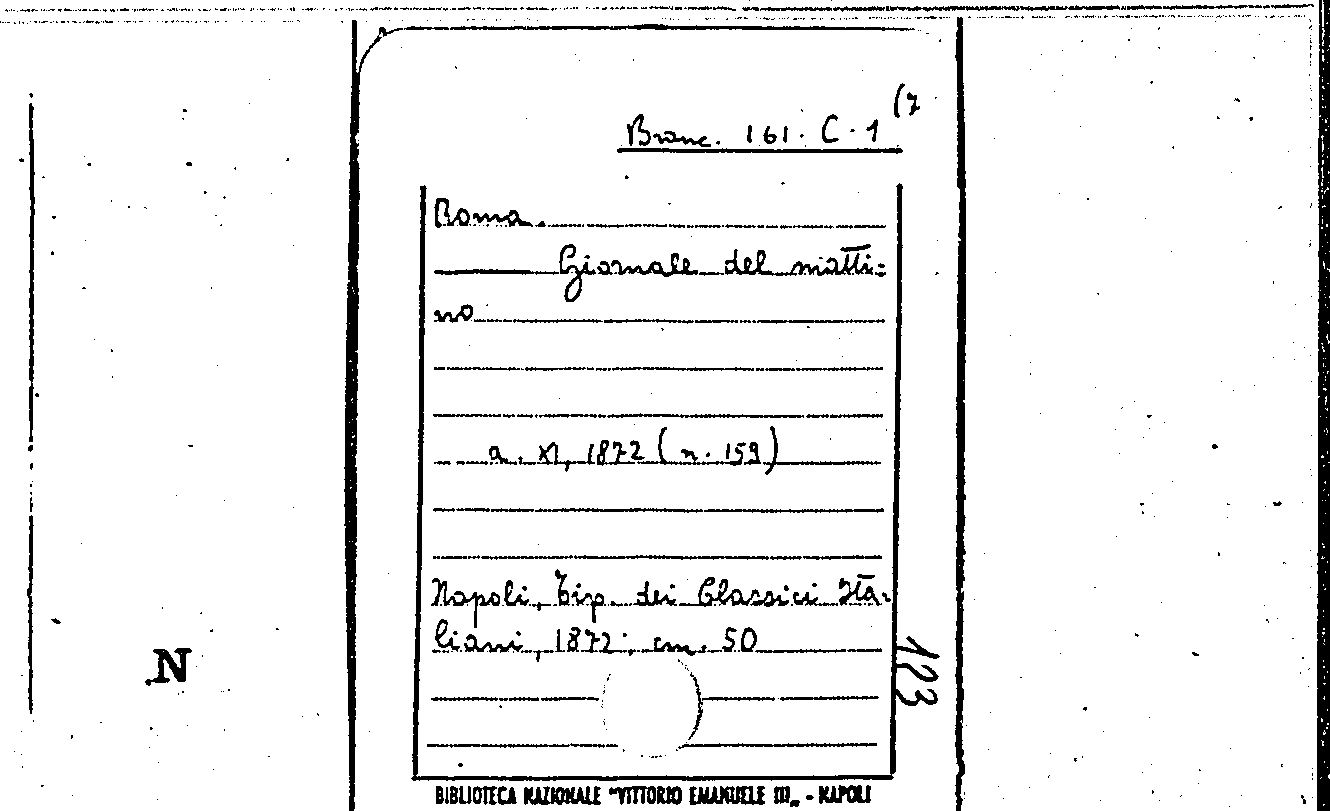 Branc. 161. C. 1 (7
Roma.
Giornale del matti=
no
a. XI, 1872 (n. 159)
Napoli, Tip. dei Classici Ita-
liani, 1872; cm. 50
123
N
BIBLIOTECA NAZIONALE "VITTORIO EMANUELE III„ - NAPOLI